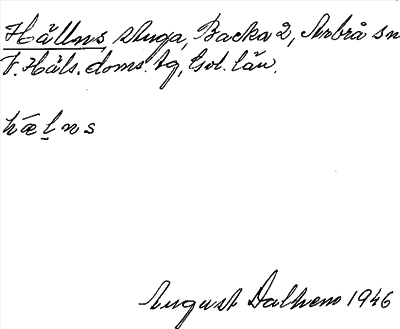 Hållns stuga, Backa 2, Arbrå sn
V. Häls. doms. tg, Gvl. län.
hæl̠ns
August Dalhem 1946